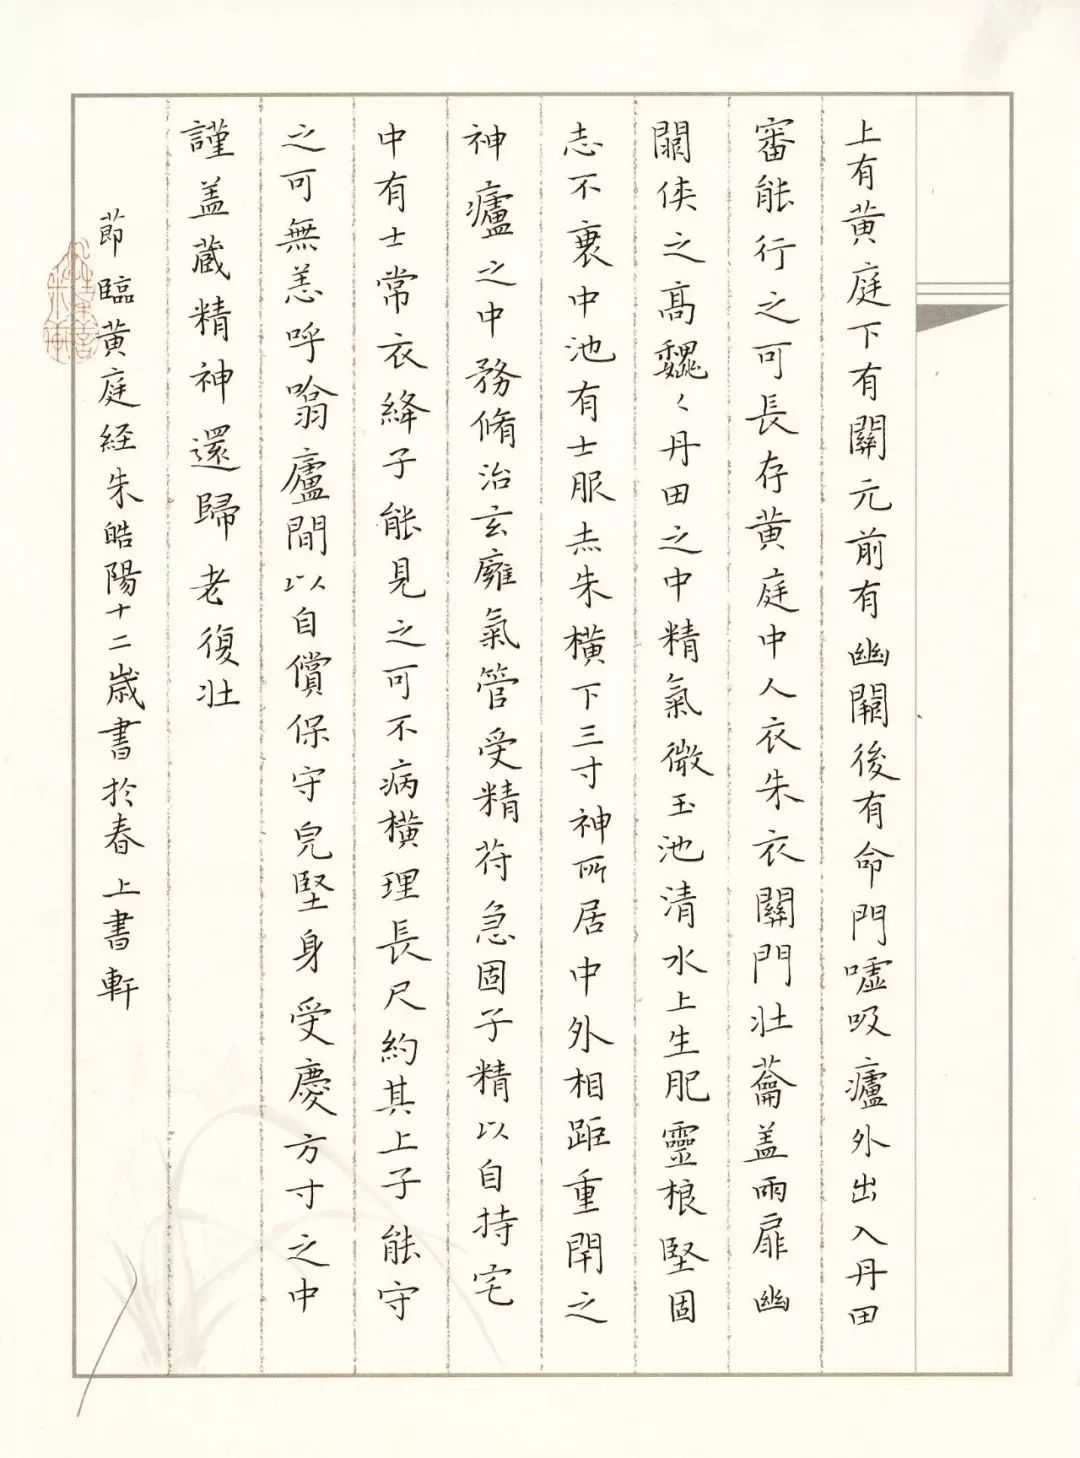 上有黄庭下有關元前有幽闕後有命門嘘吸廬外出入丹田
審能行之可長存黄庭中人衣朱衣關門壯蘥盖兩扉幽
闕俠之高巍〻丹田之中精氣微玉池清水上生肥靈根堅固
志不衰中池有士服赤朱横下三寸神所居中外相距重閇之
神廬之中務脩治玄廱氣管受精苻急固子精以自持宅
中有士常衣絳子能見之可不病橫理長尺約其上子能守
之可無恙呼噏廬間以自償保守皃堅身受慶方寸之中
謹盖蔵精神還歸老復壯
莭臨黄庭経朱皓陽十二歳書於春上書軒